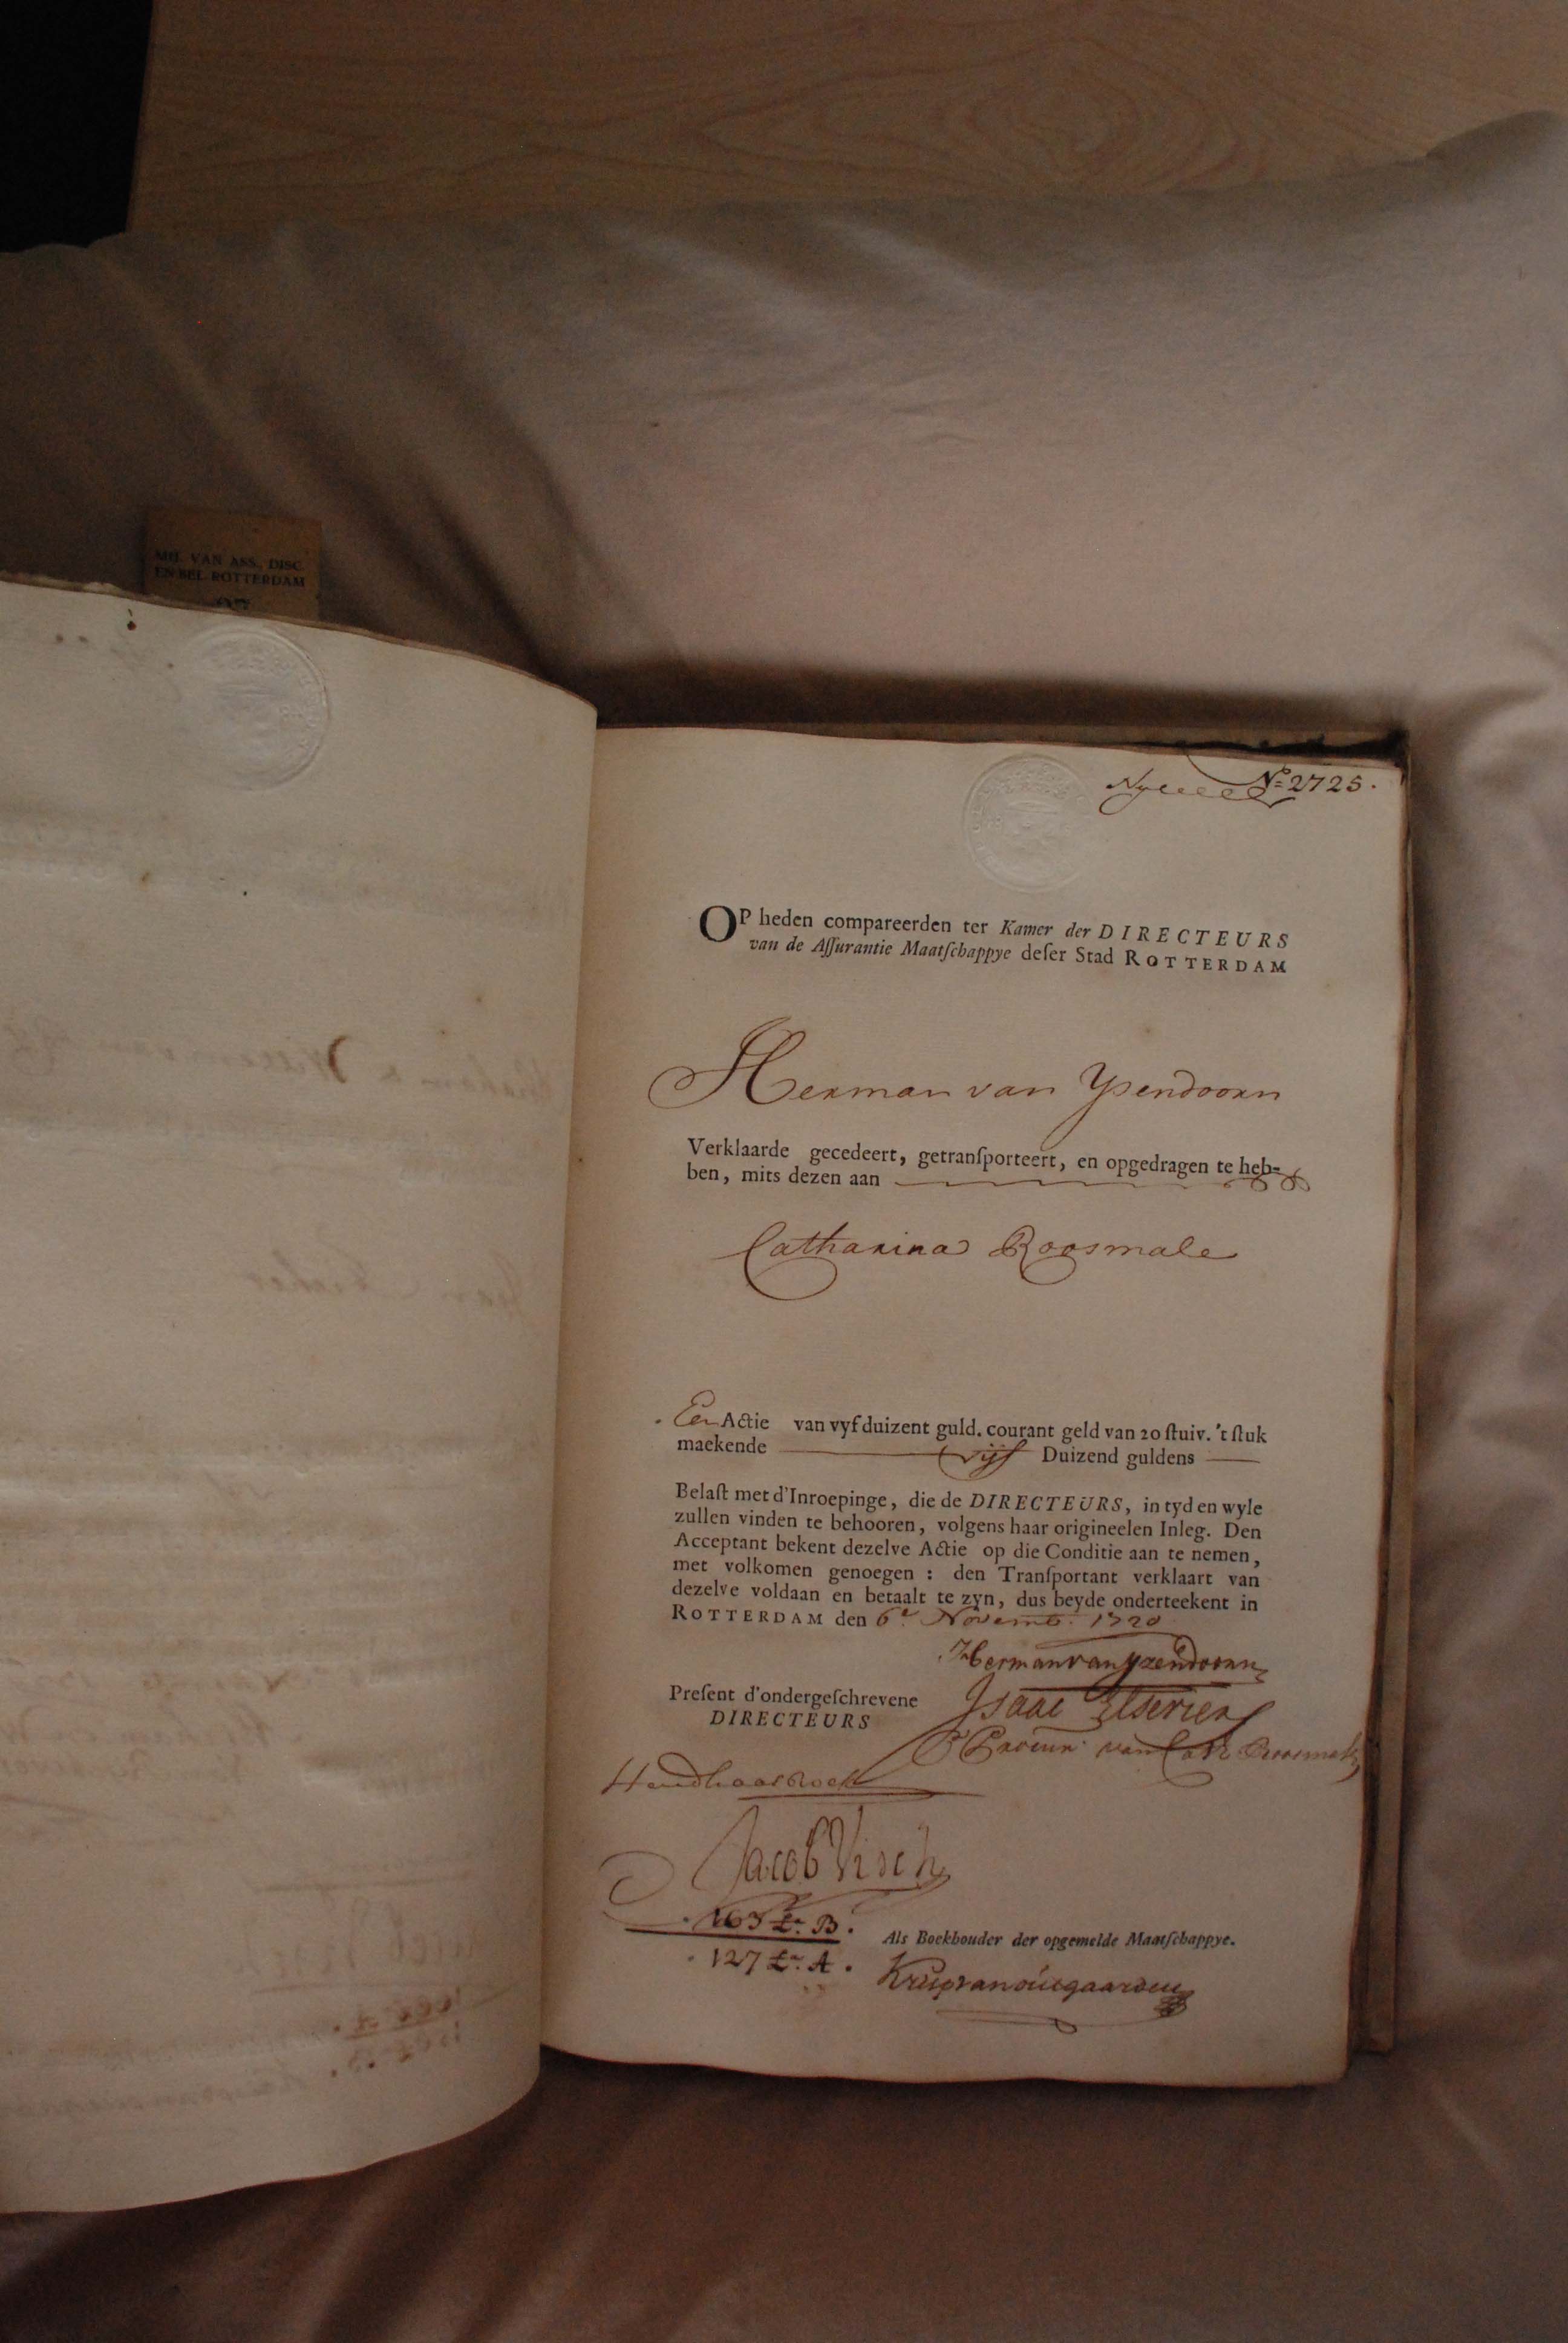 MIJ. VAN ASS., DISC.
EN BEL. ROTTERDAM
No 2725.
OP heden compareerden ter Kamer der DIRECTEURS
van de Aſſurantie Maatſchappye deſer Stad ROTTERDAM
Herman van Ysendoorn
Verklaarde gecedeert, getranſporteert, en opgedragen te heb-
ben, mits dezen aan
Catharina Roosmale
Een Actie van vyf duizent guld. courant geld van 20 ſtuiv. 't ſtuk
maekende vijf Duizend guldens
Belaſt met d'Inroepinge, die de DIRECTEURS, in tyd en wyle
zullen vinden te behooren, volgens haar origineelen Inleg. Den
Acceptant bekent dezelve Actie op die Conditie aan te nemen,
met volkomen genoegen : den Tranſportant verklaart van
dezelve voldaan en betaalt te zyn, dus beyde onderteekent in
ROTTERDAM den 6e Novemb. 1720
Herman van Yzendoorn
Preſent d'ondergeſchrevene
DIRECTEURS
Isaac Elsevier
van Cath Roosmale
Jacob Visch
163 Lr. B.
127 Lr. A.
Als Boekhouder der opgemelde Maatſchappye.